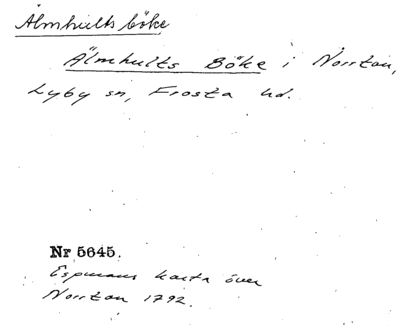 Älmhults böke
Älmhults Böke i Norrton,
Lyby sn, Frosta hd.
Nr 5645.
Espmans karta över
Norrton 1792.